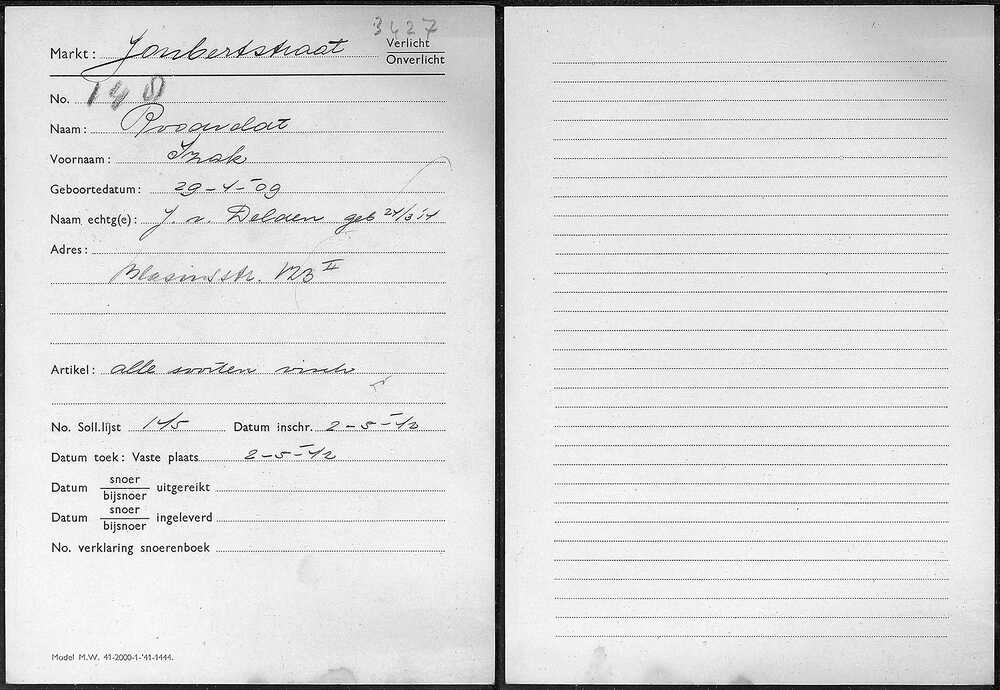 3427
Markt: Joubertstraat Verlicht
Onverlicht
No. 148
Naam: Rosendat
Voornaam: Izak
Geboortedatum: 29-4-09
Naam echtg(e): J. v. Delden geb 24/3 14
Adres:
Blasiusstr. 123 II
Artikel: alle soorten visch
No. Soll.lijst 145 Datum inschr. 2-5-42
Datum toek: Vaste plaats 2-5-42
Datum snoer
bijsnoer uitgereikt
Datum snoer
bijsnoer ingeleverd
No. verklaring snoerenboek
Model M.W. 41-2000-1-'41-1444.